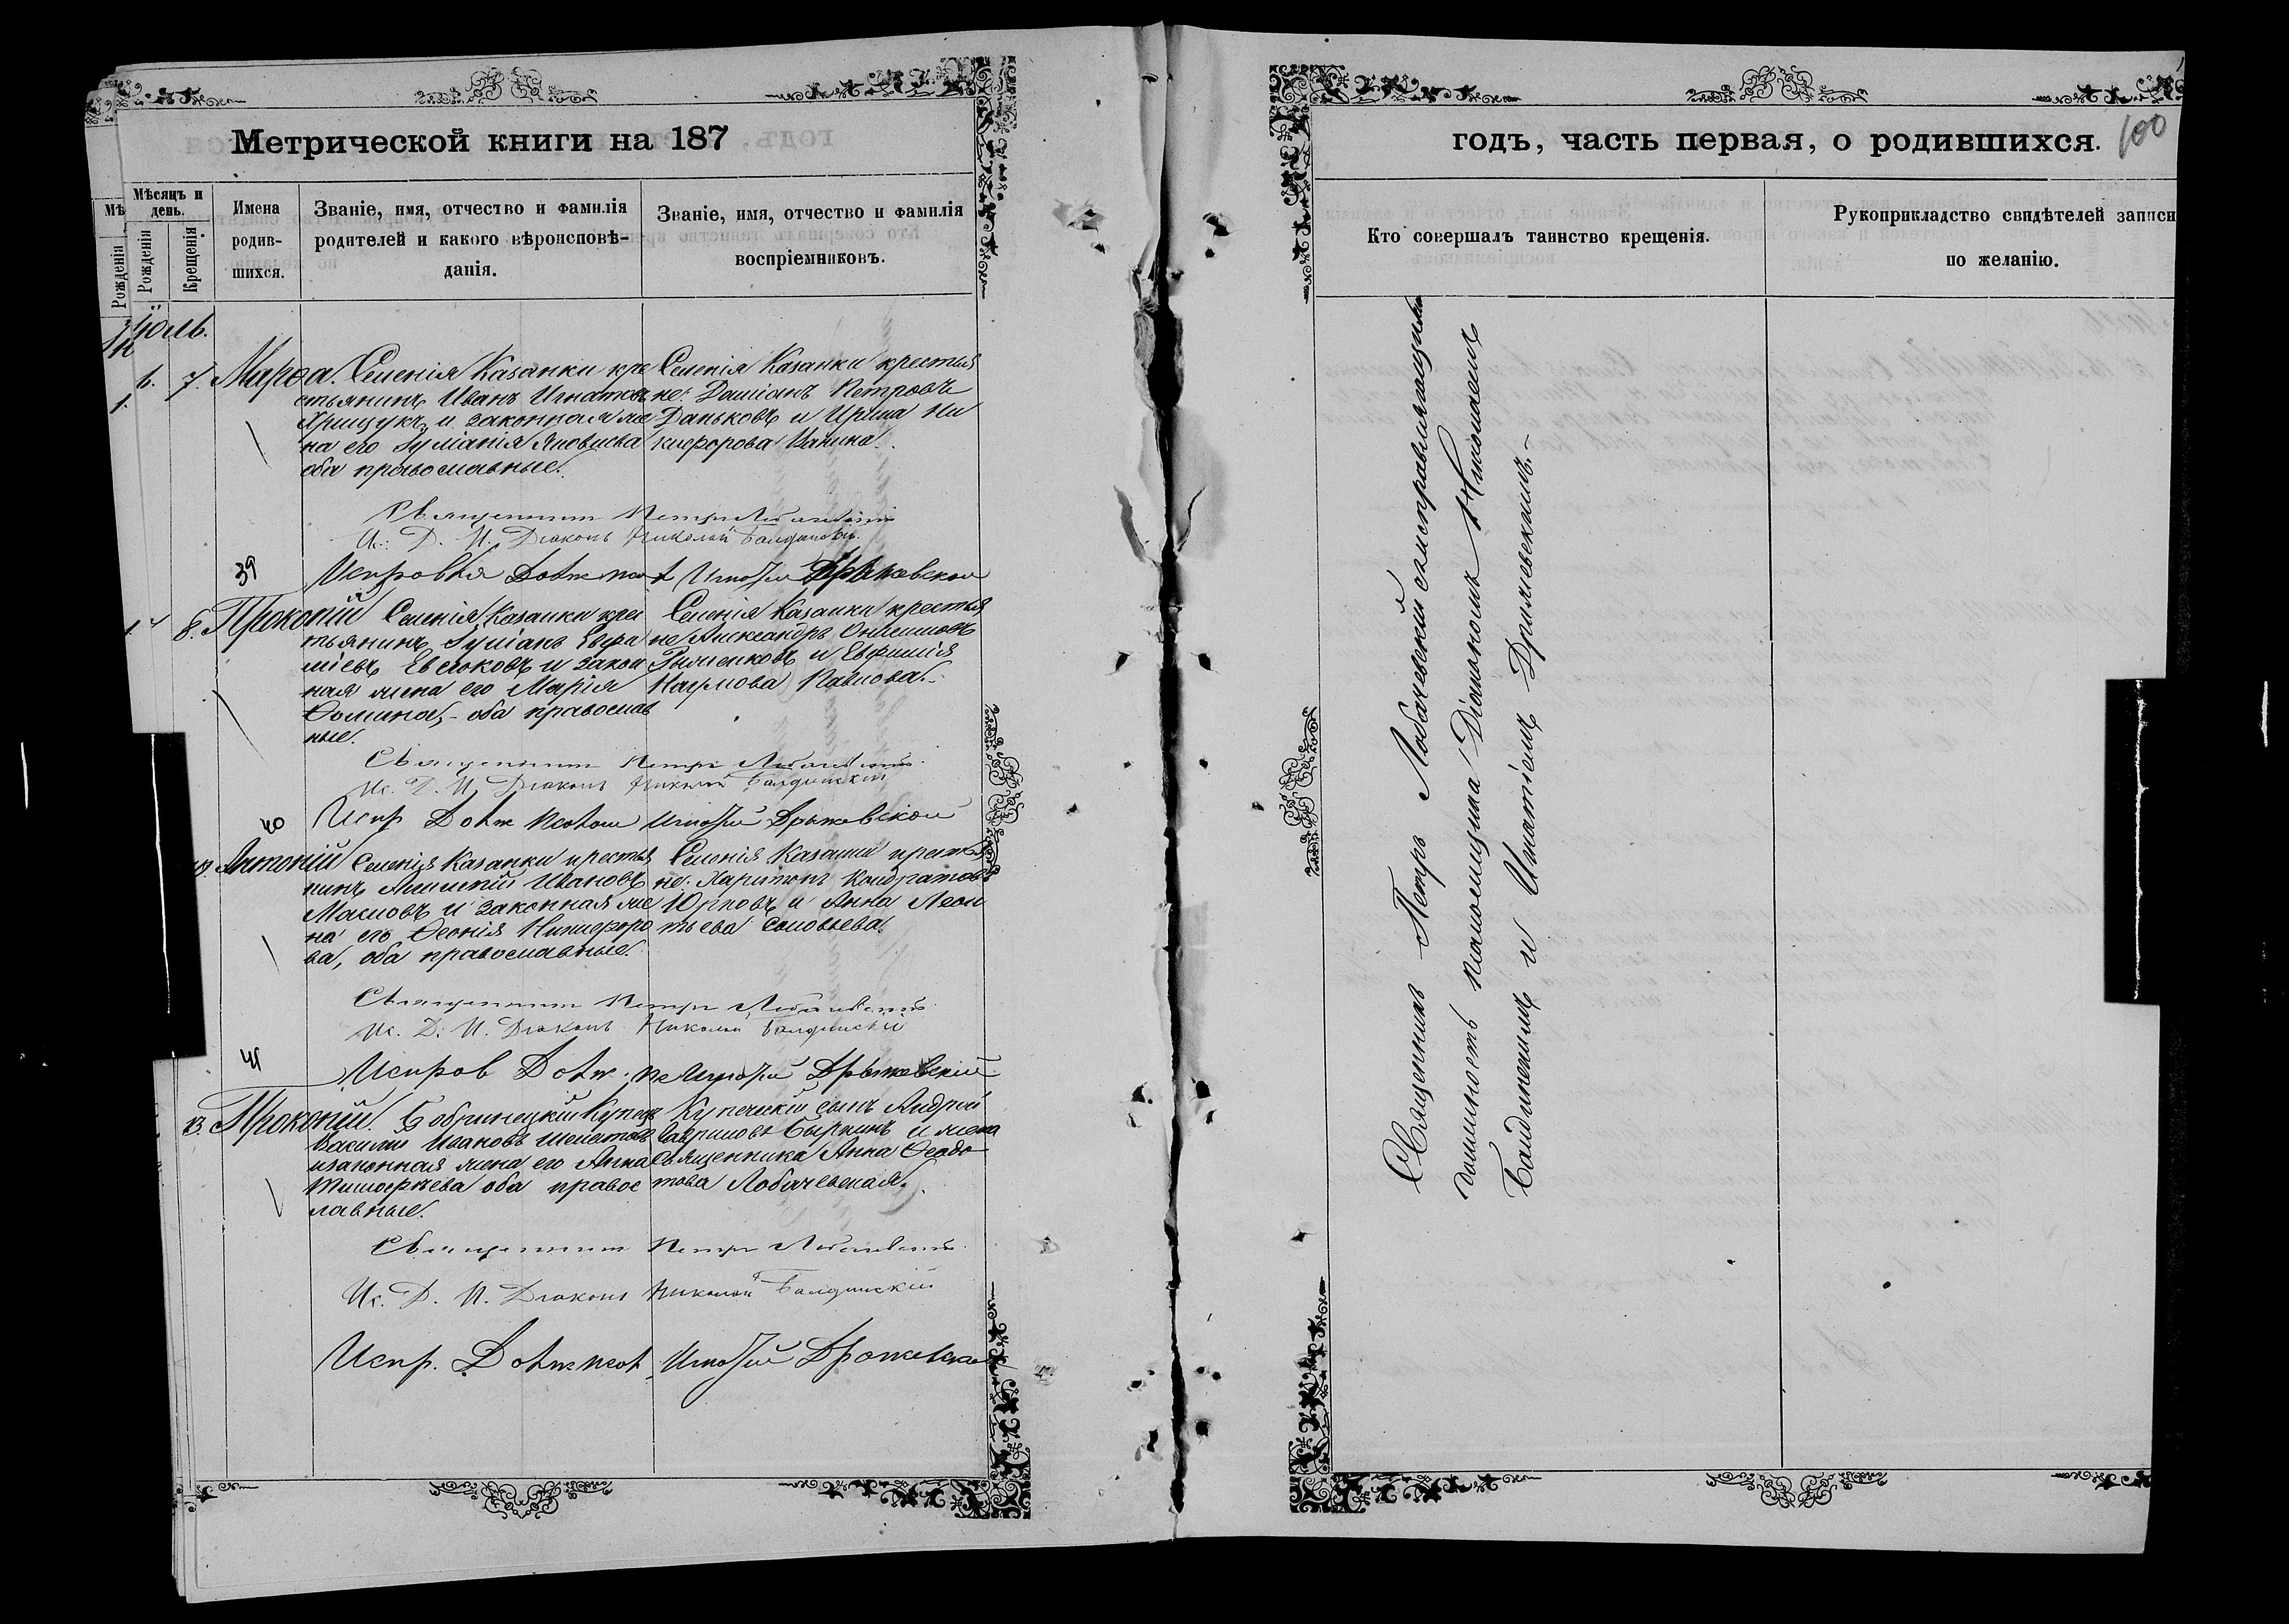 Метрической книги на 187
Мѣсяцъ и день.
Рожденія
Крещенія
Имена родив-шихся.
Званіе, имя, отчество и фамилія
родителей и какого вѣроисповѣ-
данія.
Званіе, имя, отчество и фамилія
воспріемниковъ.
Мѣ
Рожденія
Іюль.
6. 7. Марѳа. Селенія Казанки кре
стьянинъ Иванъ Игнатовъ
Грицукъ и законная же
на его Іуліанія Яковлева
оба православные.
Селенія Казанки крестья
не: Даміанъ Петровъ
Даньковъ и Ирина Ни
кифорова Ванина.
Священникъ Петръ Лобачевскій
Ис. Д. П. Діаконъ Николай Балдинскій
Игнатій
39
8. Прокопій Селенія Казанки крес
тьянинъ Іуліанъ Евфи
міевъ Евсюковъ и закон
ная жена его Марія
Ѳомина, - оба православ
ные.
Селенія Казанки крестья
не Александръ Онисимовъ
и Евфимія
Наумова Павлова.
Священникъ Петръ Лобачевскій
Ис. Д. П. Діаконъ Николай Балдинскій
Испр Долж Псалом Игнатій
40
Антоній Селенія Казанки крестья
нинъ Ивановъ
Масловъ и законная же
на его Ѳеонія Никифоро
ва, оба православные.
Селенія Казанки крестья
не. Харитонъ Кондратовъ
и Анна Леон
тьева Соловьева.
Священникъ Петръ Лобачевскій
Ис. Д. П. Діаконъ Николай Балдинскій
Исправ Долж. Игнатій
41
13. Прокопій. Бобринецкій Купецъ
Василій Ивановъ
и законная жена его Анна
Тимоѳеева оба правос
лавные.
Купеческій сынъ Андрей
Гавриловъ и жена
священника Анна Ѳеодо
това Лобачевская.
Священникъ Петръ Лобачевскій
Ис. Д. П. Діаконъ Николай Балдинскій
Испр. Долж псал Игнатій
годъ, часть первая, о родившихся.
100
Кто совершалъ таинство крещенія.
Рукоприкладство свидѣтелей записи
по желанію.
Священникъ Петръ Лобачевскій съ исправляющими
должность псаломщика Діакономъ Николаемъ
Балдинскимъ и Игнатіемъ